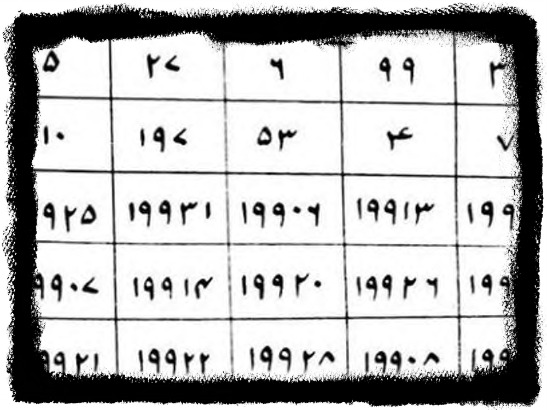 ۳ ۹۹ ۶ ۲۷ ۵
۷ ۴ ۵۳ ۱۹۷ ۱۰
۱۹۹ ۱۹۹۱۳ ۱۹۹۰۶ ۱۹۹۳۱ ۹۲۵
۱۹۹ ۱۹۹۲۶ ۱۹۹۲۰ ۱۹۹۱۴ ۹۹۰۷
۱۹۹ ۱۹۹۰۸ ۱۹۹۲۸ ۱۹۹۲۲ ۹۹۲۱